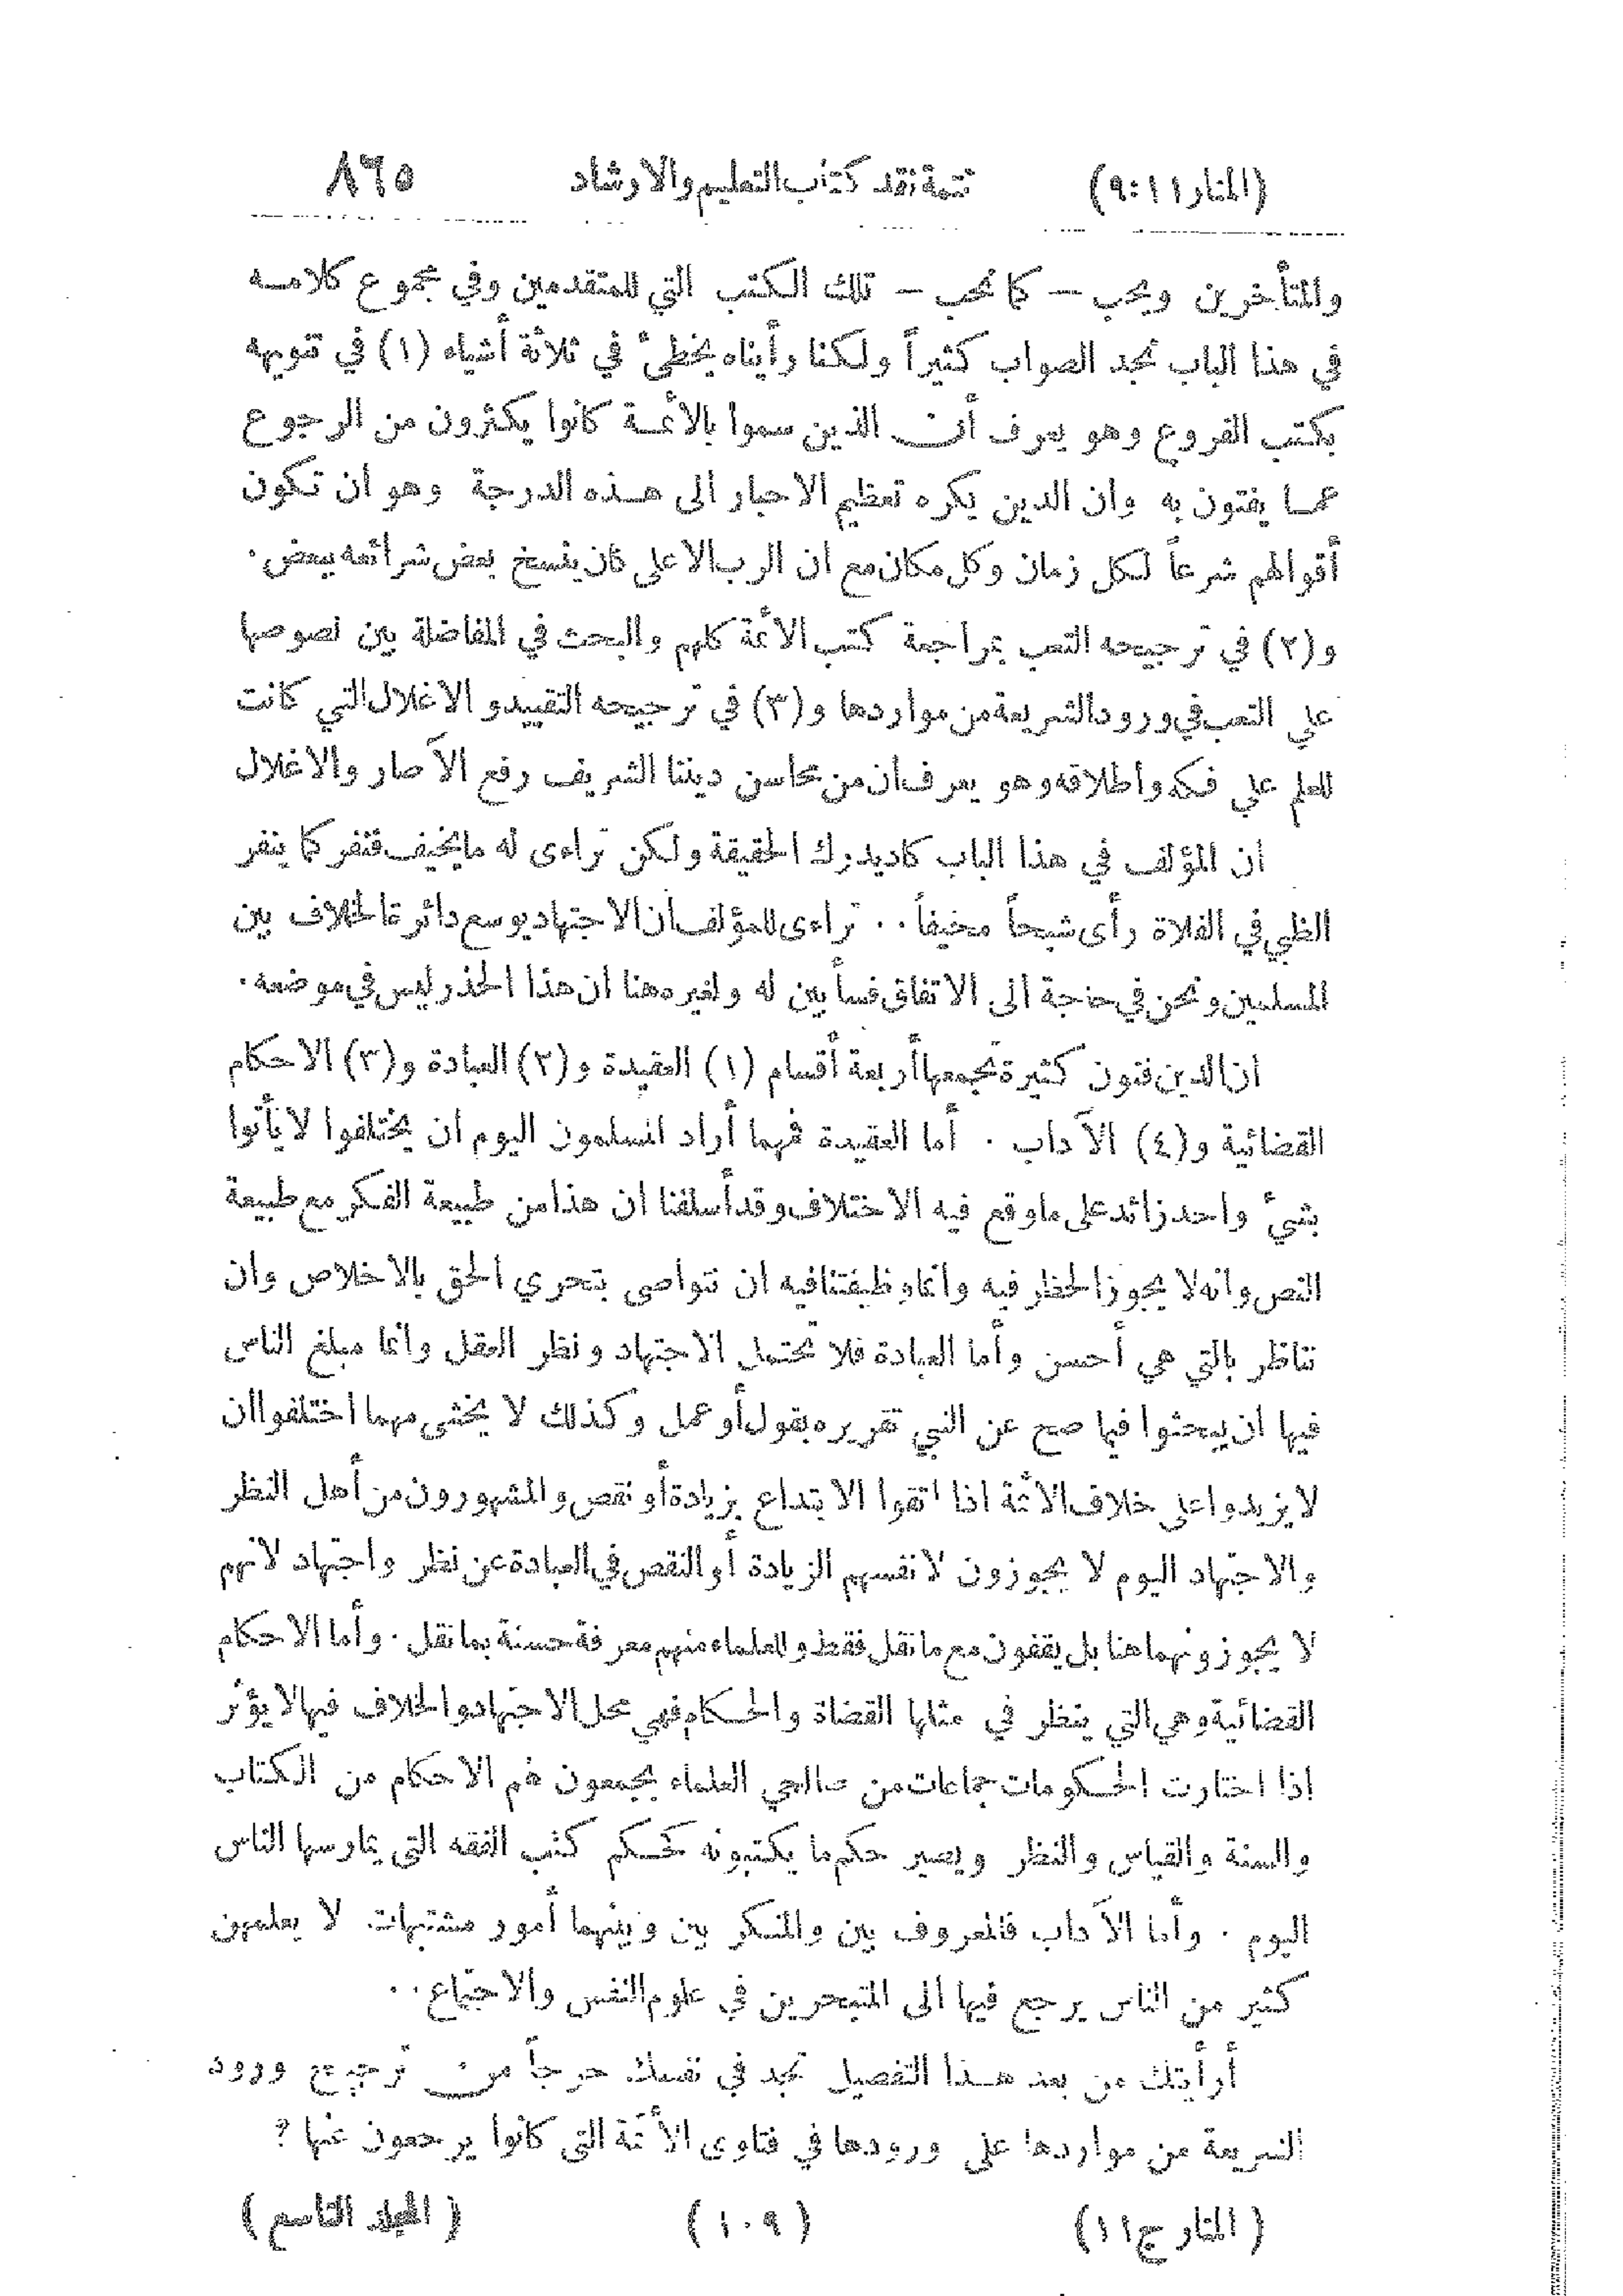 (المنار١١:٩) تتمة نقد كتاب التعليم والارشاد ٨٦٥
وللمتأخرين ويحب — كما نحب — تلك الكتب التي للمتقدمين وفي مجموع كلامه
في هذا الباب نجد الصواب كثيراً ولكنا رأيناه يخطئ في ثلاثة أشياء (١) في تنويهه
بكتب الفروع وهو يعرف أن الذين سموا بالائمة كانوا يكثرون من الرجوع
عما يفتون به وان الدين يكره تعظيم الاحبار الى هذه الدرجة وهو ان تكون
أقوالهم شرعاً لكل زمان وكل مكان مع ان الرب الاعلى كان ينسخ بعض شرائعه ببعض ٠
و(٢) في ترجيحه التعب بمراجعة كتب الائمة كلهم والبحث في المفاضلة بين نصوصها
على التعب في ورود الشريعة من مواردها و(٣) في ترجيحه التقييد والاغلال التي كانت
للعلم على فكه وأطلاقه وهو يعرف ان من محاسن ديننا الشريف رفع الآصار والاغلال
ان المؤلف في هذا الباب كاد يدرك الحقيقة ولكن تراءى له ما يخيف فنفر كما ينفر
الظبي في الفلاة رأى شبحاً مخيفاً ٠٠ تراءى للمؤلف ان الاجتهاد يوسع دائرة الخلاف بين
المسلمين ونحن في حاجة الى الاتفاق فسأبين له ولغيره هنا ان هذا الحذر ليس في موضعه ٠
ان الدين فنون كثيرة تجمعها أربعة أقسام (١) العقيدة و(٢) العبادة و(٣) الاحكام
القضائية و(٤) الآداب ٠ أما العقيدة فمهما أراد المسلمون اليوم ان يختلفوا لا يأتوا
بشيء واحد زائد على ما وقع فيه الاختلاف وقد أسلفنا ان هذا من طبيعة الفكر مع طبيعة
النص وانه لا يجوز الحظر فيه وانما وظيفتنا فيه ان نتواصى بتحري الحق بالاخلاص وان
نناظر بالتي هي أحسن وأما العبادة فلا تحتمل الاجتهاد ونظر العقل وانما مبلغ الناس
فيها ان يبحثوا فيما صح عن النبي تقريره بقول أو عمل وكذلك لا يخشى مهما اختلفوا ان
لا يزيدوا على خلاف الائمة اذا اتقوا الابتداع بزيادة أو نقص والمشهورون من أهل النظر
والاجتهاد اليوم لا يجوزون لانفسهم الزيادة أو النقص في العبادة عن نظر واجتهاد لانهم
لا يجوزونهما هنا بل يقفون مع ما نقل فقط وللعلماء منهم معرفة حسنة بما نقل ٠ وأما الاحكام
القضائية وهي التي ينظر في مثلها القضاة والحكام فهي محل الاجتهاد والخلاف فيها لا يؤثر
اذا اختارت الحكومات جماعات من صالحي العلماء يجمعون لهم الاحكام من الكتاب
والسنة والقياس والنظر ويصير حكم ما يكتبونه كحكم كتب الفقه التي يمارسها الناس
اليوم ٠ وأما الآداب فالمعروف بين والمنكر بين وبينهما أمور مشتبهات لا يعلمهن
كثير من الناس يرجع فيها الى المتبحرين في علوم النفس والاجتماع ٠٠
أرأيتك من بعد هذا التفصيل تجد في نفسك حرجاً من ترجيح ورود
الشريعة من مواردها على ورودها في فتاوى الأئمة التي كانوا يرجعون عنها ؟
(المنار ج ١١) (١٠٩) (المجلد التاسع)